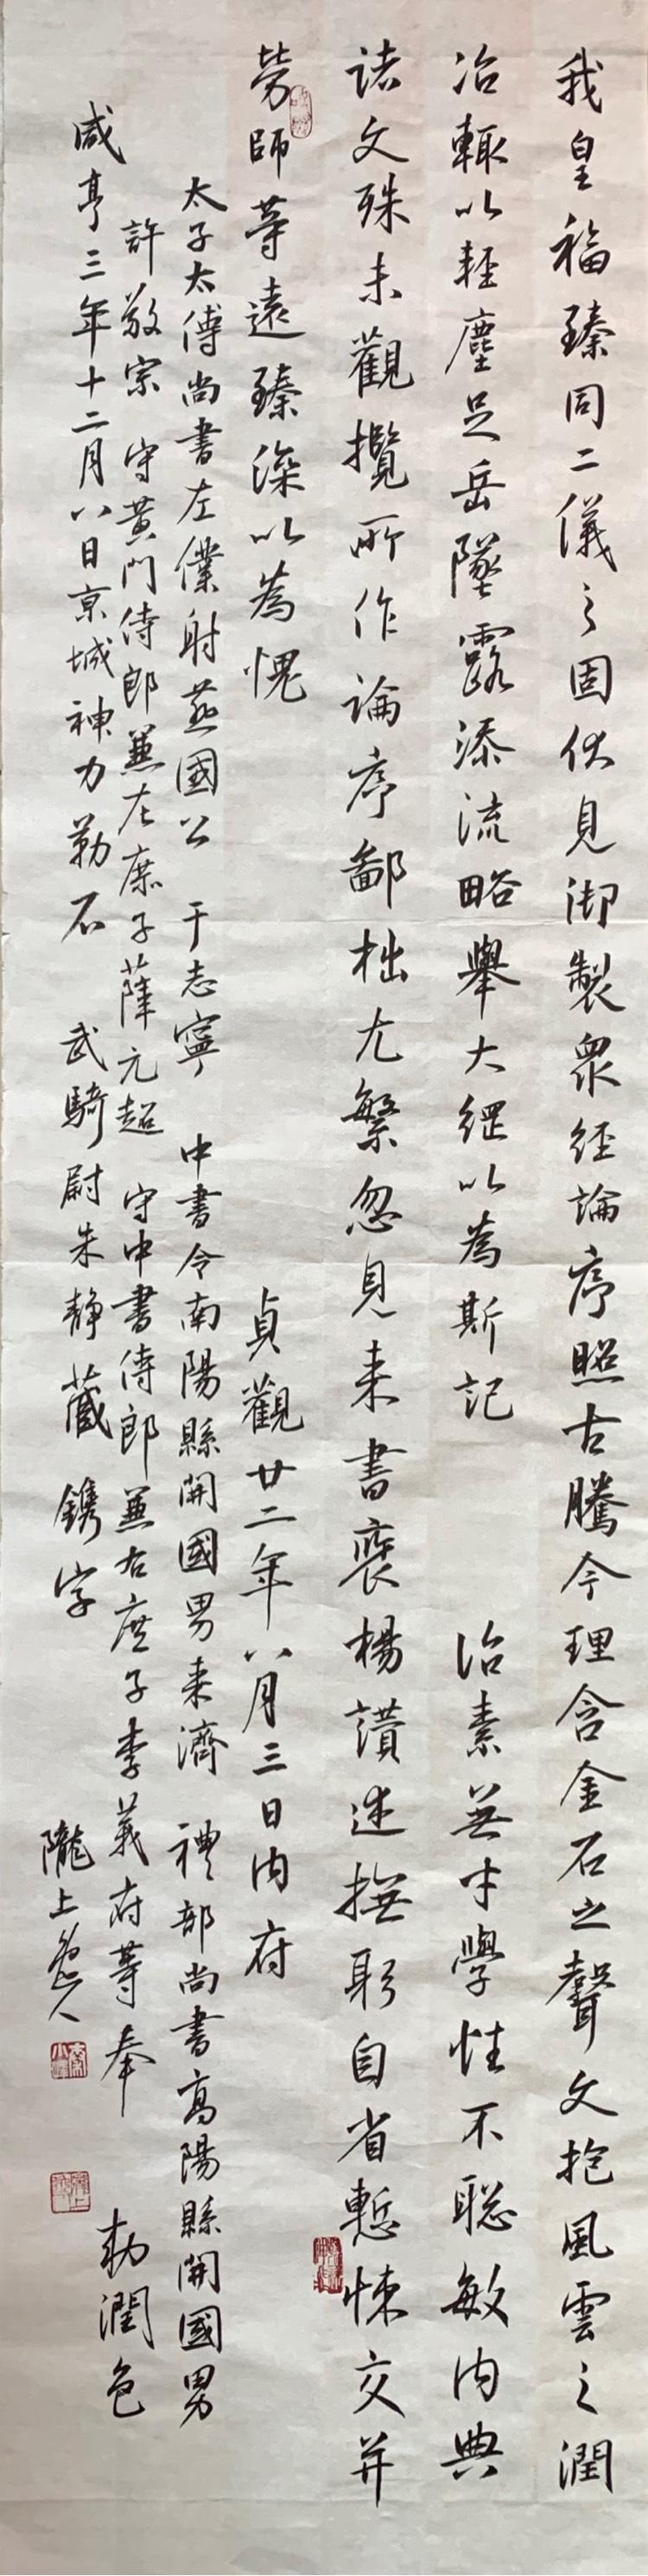 我皇福臻同二儀之固伏見御製眾經論序照古騰今理含金石之聲文抱風雲之潤
治輒以輕塵足岳墜露添流略舉大綱以為斯記 治素無才學性不聰敏內典
諸文殊未觀攬所作論序鄙拙尤繁忽見來書褒揚讚述撫躬自省慙悚交并
勞師等遠臻深以為愧 貞觀廿二年八月三日內府
太子太傅尚書左僕射燕國公 于志寧 中書令南陽縣開國男來濟 禮部尚書高陽縣開國男
許敬宗 守黃門侍郎兼左庶子薛元超 守中書侍郎兼右庶子李義府等奉 勅潤色
咸亨三年十二月八日京城神力勒石 武騎尉朱靜藏鐫字
隴上愚人